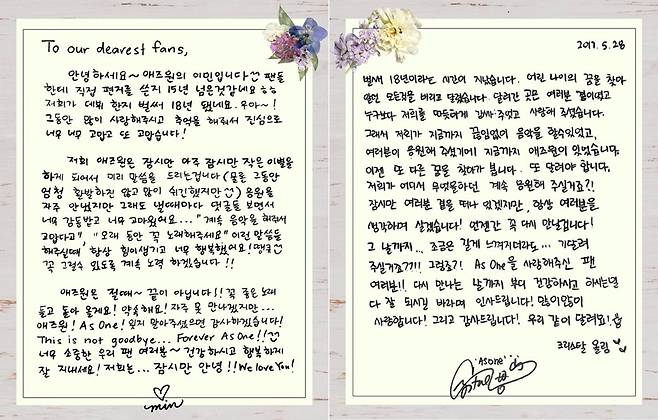 To our dearest fans,
안녕하세요~ 애즈원의 이민입니다 팬들
한테 직접 편지를 쓴지 15년 넘은것같네요 ㅎㅎ
저희가 데뷔 한지 벌써 18년 됐네요. 우아~!
그동안 많이 사랑해주시고 추억을 해줘서 진심으로
너무 너무 고맙고 또 고맙습니다!
저희 애즈원은 잠시만 아주 잠시만 작은 이별을
하게 되어서 미리 말씀을 드리는겁니다 (물론 그동안
엄청 활발하진 않고 많이 쉬긴했지만) 음원을
자주 안냈지만 그래도 낼때마다 댓글을 보면서
너무 감동받고 너무 고마웠어요... "계속 음악을 해줘서
고맙다고" "오래 동안 꼭 노래해주세요" 이런 말씀들
해주실때 항상 힘이생기고 너무 행복했어요! 땡큐
꼭 그럴수 있도록 계속 노력 하겠습니다!!
애즈원은 절때~ 끝이 아닙니다!! 꼭 좋은 노래
들고 돌아 올게요! 약속해요! 자주 못 만나겠지만...
애즈원! As One! 잊지 말아주셨으면 감사하겠습니다!
This is not goodbye... Forever As One!!
너무 소중한 우리 팬 여러분~ 건강하시고 행복하게
잘 지내세요! 저희는... 잠시만 안녕!! We love You!
min
2017. 5. 28
벌써 18년이라는 시간이 지났습니다. 어린 나이의 꿈을 찾아
왔던 모든것을 버리고 달렸습니다. 달려간 곳은 여러분 곁이었고
누구보다 저희를 따뜻하게 감싸주었고 사랑해 주셨습니다.
그래서 저희가 지금까지 끊임없이 음악을 할수있었고,
여러분이 응원해 주셨기에 지금까지 애즈원이 있었습니다.
이젠 또 다른 꿈을 찾아가 봅니다. 또 달려야 합니다.
저희가 어디서 무엇을하던 계속 응원해 주실거죠?!
잠시만 여러분 곁을 떠나 있겠지만, 항상 여러분을
생각하며 살겠습니다! 언젠간 꼭 다시 만날겁니다!
그 날까지... 조금은 길게 느껴지더라도... 기다려
주실거죠??!! 그럴죠?! As One을 사랑해주신 팬
여러분!! 다시 만나는 날까지 부디 건강하시고 하시는일
다 잘 되시길 바라며 인사드립니다! 많이많이
사랑합니다! 그리고 감사드립니다! 우리 같이 달려요!
크리스탈 올림
As One